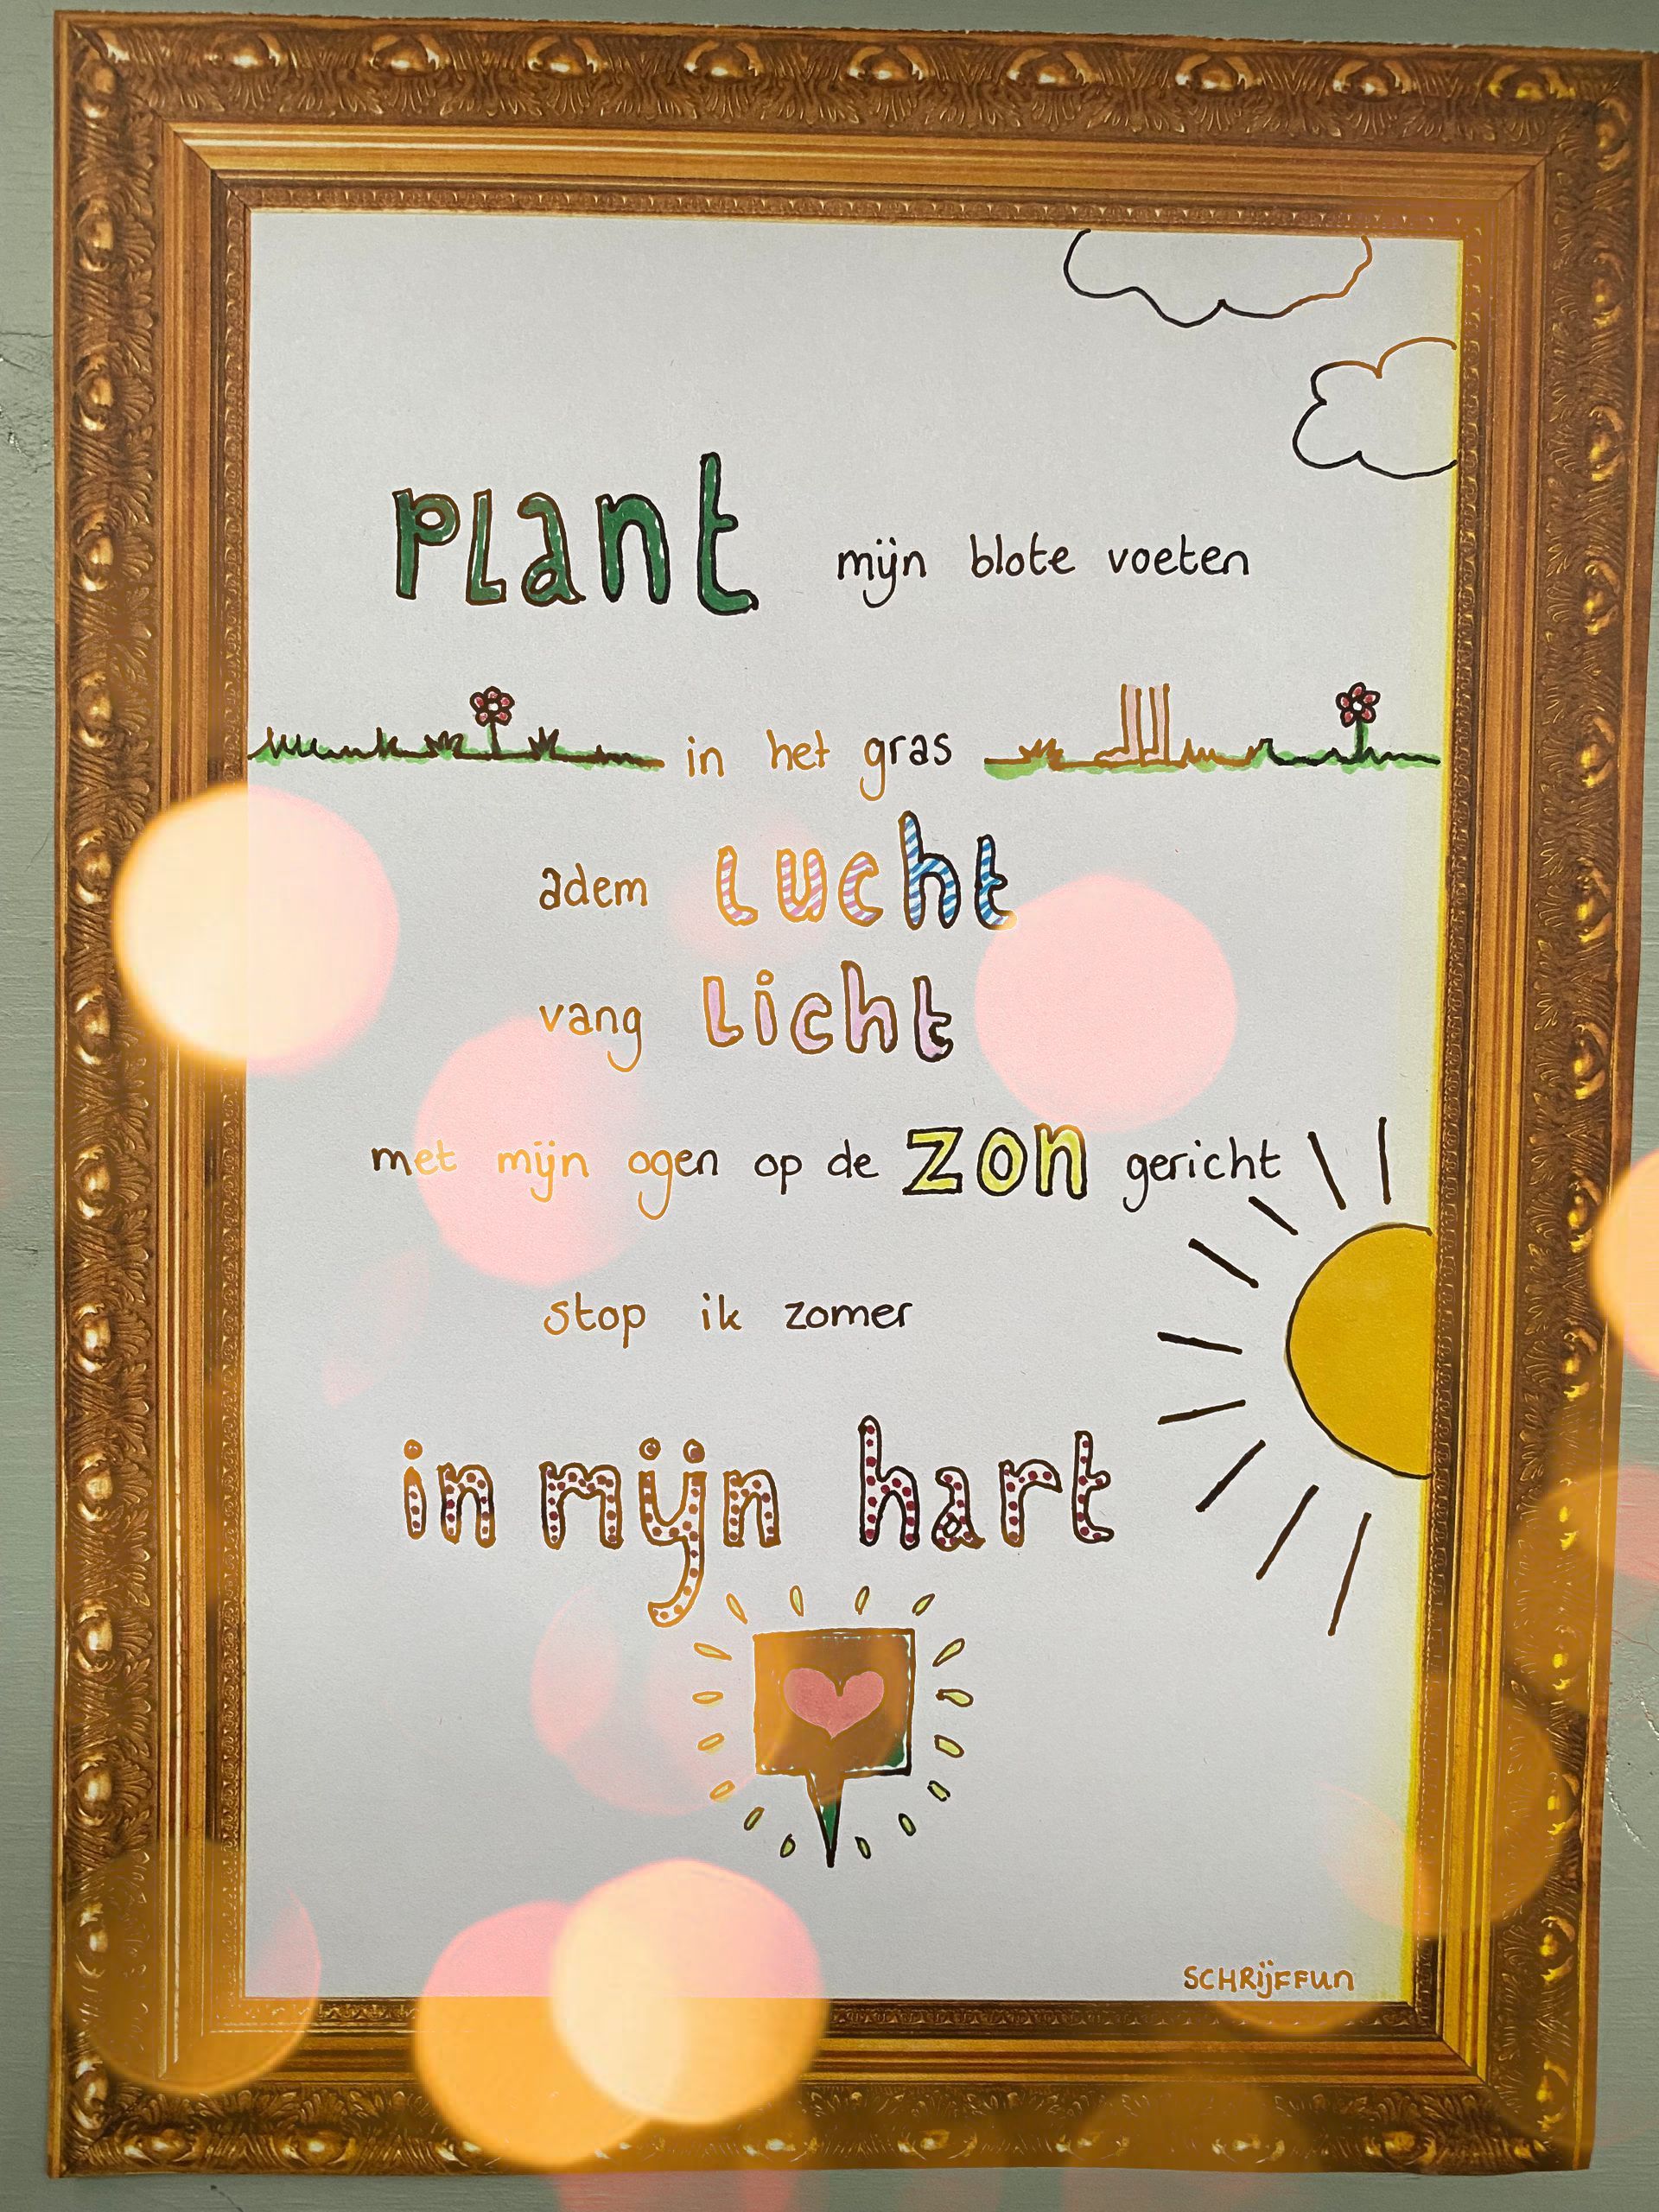 PLant mijn blote voeten
in het gras
adem lucht
vang Licht
met mijn ogen op de zon gericht
stop ik zomer
in mijn hart
SCHRijFFun